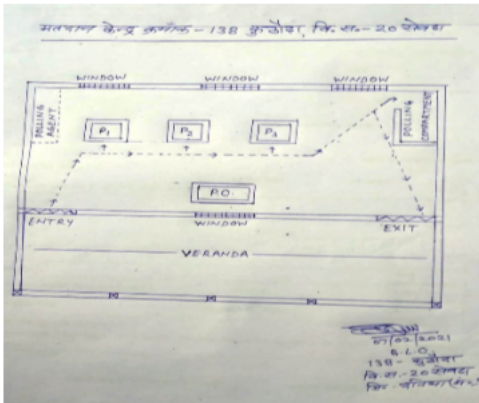 मतदान केन्द्र क्रमांक - 138 कुठौंदा, वि.स.- 20 सेवढा
WINDOW WINDOW WINDOW
POLLING AGENT
P1 P2 P3
POLLING COMPARTMENT
P.O.
ENTRY WINDOW EXIT
VERANDA
07/02/2021
B.L.O.
138 -
वि.स.-20 सेवढा